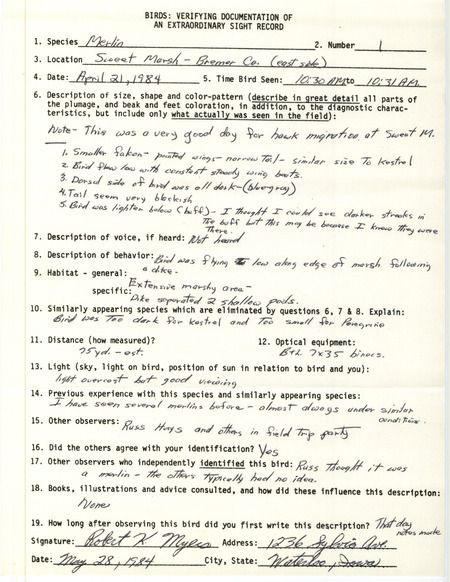 BIRDS: VERIFYING DOCUMENTATION OF
AN EXTRAORDINARY SIGHT RECORD
1. Species Merlin 2. Number 1
3. Location Sweet Marsh - Bremer Co. (east side)
4. Date: April 21, 1984 5. Time Bird Seen: 10:30 AM to 10:31 AM.
6. Description of size, shape and color-pattern (describe in great detail all parts of
the plumage, and beak and feet coloration, in addition, to the diagnostic charac-
teristics, but include only what actually was seen in the field):
Note - This was a very good day for hawk migration at Sweet M.
1. Smaller falcon - pointed wings - narrow tail - similar size to Kestrel
2. Bird flew low with constant steady wing beats.
3. Dorsal side of bird was all dark - (blue-gray)
4. Tail seem very blackish
5. Bird was lighter below (buff) - I thought I could see darker streaks in
the buff but this may be because I knew they were
there.
7. Description of voice, if heard: Not heard
8. Description of behavior: Bird was flying low along edge of marsh following
a dike.
9. Habitat - general: Extensive marshy area -
specific: Dike separated 2 shallow pools.
10. Similarly appearing species which are eliminated by questions 6, 7 & 8. Explain:
Bird was too dark for kestrel and too small for Peregrine
11. Distance (how measured)? 12. Optical equipment:
75 yd. - est. B+L 7x35 binocs.
13. Light (sky, light on bird, position of sun in relation to bird and you):
light overcast but good viewing
14. Previous experience with this species and similarly appearing species:
I have seen several merlins before - almost always under similar
conditions.
15. Other observers: Russ Hays and others in field trip party
16. Did the others agree with your identification? Yes
17. Other observers who independently identified this bird: Russ thought it was
a merlin - the others typically had no idea.
18. Books, illustrations and advice consulted, and how did these influence this description:
None
19. How long after observing this bird did you first write this description? That day
notes made
Signature: Robert K. Myers Address: 1236 Sylvia Ave.
Date: May 28, 1984 City, State: Waterloo, Iowa